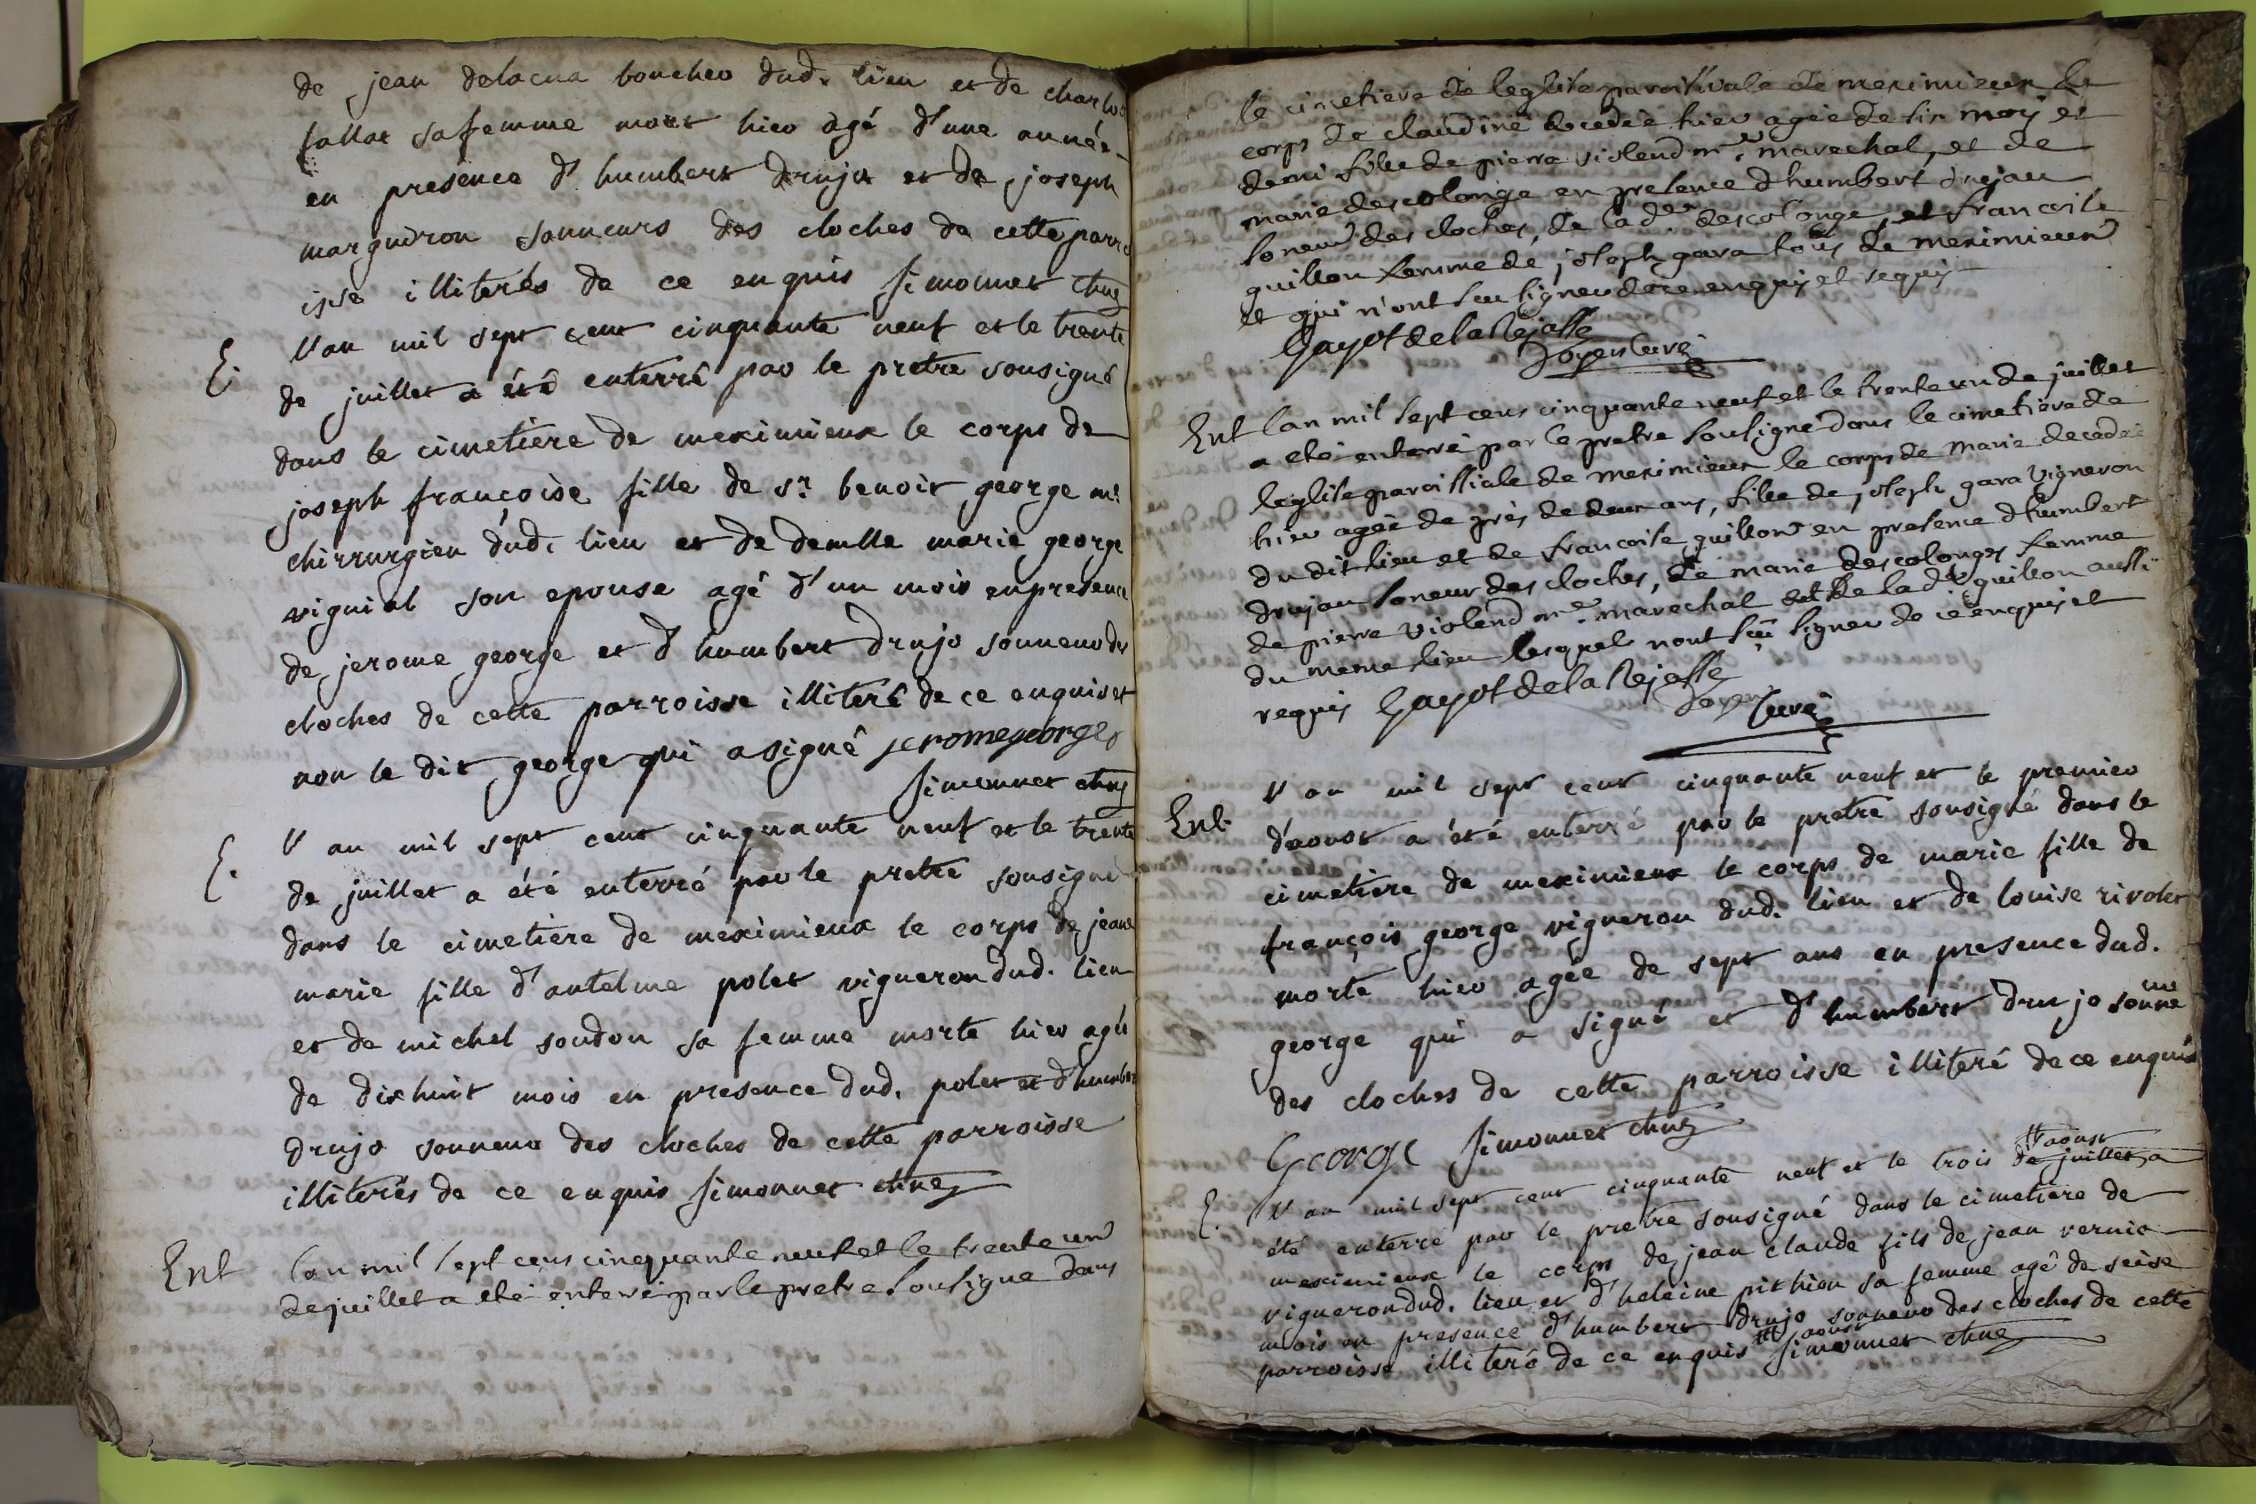 de jean delacua boucheo dud. lieu et de charlot
fallat sa femme mort hieo agé d'une année
en presence d'humbert drujo et de joseph
margueron sonneurs des cloches de cette parro
isse illiterés de ce enquis Simonnet
E. l'an mil sept cent cinquante neuf et le trente
de juillet a été enterré par le pretre sousigné
dans le cimetiere de meximieux le corps de
joseph françoise fille de sr. benoit george mt
chirrurgien dud. lieu et de demlle marie george
vignial son epouse agé d'un mois en presence
de jerome george et d'humbert drujo sonneuo des
cloches de cette parroisse illiteré de ce enquis et
non le dit george qui a signé jeromegeorge
Simonnet
E. l'an mil sept cent cinquante neuf et le trente
de juillet a été enterré par le pretre sousigné
dans le cimetiere de meximieux le corps de jeane
marie fille d'antelme polet vigneron dud. lieu
et de michel soudon sa femme morte hieo agée
de dixhuit mois en presence dud. polet et d'humber
drujo sonneuo des cloches de cette parroisse
illiterés de ce enquis Simonnet
Ent lan mil sept cens cinquante neuf et le trente un
de juillet a eté enterré par le pretre sousigné dans
le cimetiere de leglise paroissiale de meximieux le
corps de claudine decedée hier agée de six moy et
demi fille de pierre violend mre. marechal, et de
marie descolonge en presence dhumbert drujau
soneur des cloches, de lade. descolonge, et francoise
guillon femme de joseph gara tous de meximieux
et qui n'ont sceu signer de ce enquis et requis
Gayot de la Rejasse
Doyen Curé
Ent lan mil sept cens cinquante neuf et le trente un de juillet
a eté enterré par le pretre sousigné dans le cimetiere de
leglise paroissiale de meximieux le corps de marie decedée
hier agée de près de deux ans, fille de joseph gara vigneron
du dit lieu et de francoise guillon en presence dhumbert
drujau soneur des cloches, de marie descolonges femme
de pierre violend mre. marechal et de lade guillon aussi
du meme lieu lesquels nont sceu signer de ce enquis et
requis Gayot de la Rejasse
Doyen Curé
Ent. l'an mil sept cent cinquante neuf et le premieo
d'aoust a été enterré par le pretre sousigné dans le
cimetiere de meximieux le corps de marie fille de
françois george vigneron dud. lieu et de louise rivolet
morte hieo agée de sept ans en presence dud.
george qui a signé et d'humbert drujo sonne
des cloches de cette parroisse illiteré de ce enquis
George Simonnet
aoust
E. l'an mil sept cent cinquante neuf et le trois de juillet a
été enterré par le pretre sousigné dans le cimetiere de
meximieux le corps de jean claude fils de jean vernio
vigneron dud. lieu et d'heleine pithion sa femme agé de seise
mois en presence d'humbert drujo sonneuo des cloches de cette
parroisse illiteré de ce enquis # aoust Simonnet